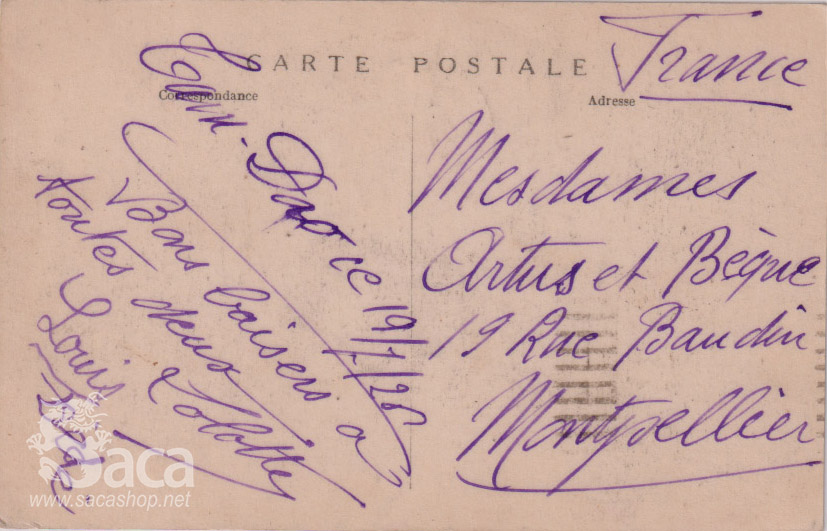 CARTE POSTALE
Correspondance
Adresse
France
Mesdames
Artus et Bèque
19 Rue Baudin
Montpellier
Tam-Dao ce 19/7/26
Bons baisers a
toutes deux
Lolotte
Louis
Saca
www.sacashop.net